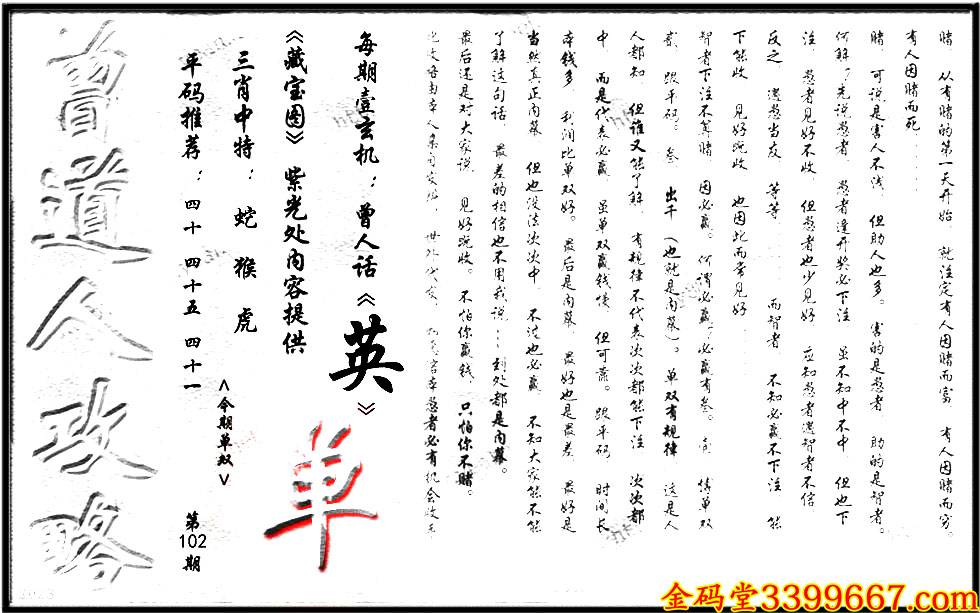 赌 从有赌的第一天开始 就注定有人因赌而富 有人因赌而穷。
有人因赌而死
赌 可说是害人不浅 但助人也多。害的是愚者 助的是智者。
何解?先说愚者 愚者逢开奖必下注 虽不知中不中 但也下
注 愚者见好不收 但愚者也少见好 应知愚者遇智者不信
反之 遇愚当友 等等 而智者 不知必赢不下注 能
下能收 见好就收 也因此而常见好
智者下注不算赌 因必赢。何谓必赢?必赢有叁。 猜单双
贰 跟平码。叁 出千(也就是内幕)。单双有规律 这是人
人都知 但谁又能了解 有规律不代表次次都能下注 次次都
中 而是代表必赢 虽单双赢钱慢 但可靠。跟平码 时间长
本钱多 利润比单双好。最后是内幕 最好也是最差 最好是
当然真正内幕 但也没法次次中 不过也必赢 不知大家能不能
了解这句话 最差的相信也不用我说:到处都是内幕。
最后还是对大家说 见好就收。不怕你赢钱,只怕你不赌。
每期壹玄机:曾人话《英》
《藏宝图》紫光处内容提供
三肖中特: 蛇 猴 虎
平码推荐:四十 四十五 四十一
<今期单双>
单
第102期
曾道人攻略
金码堂3399667.com